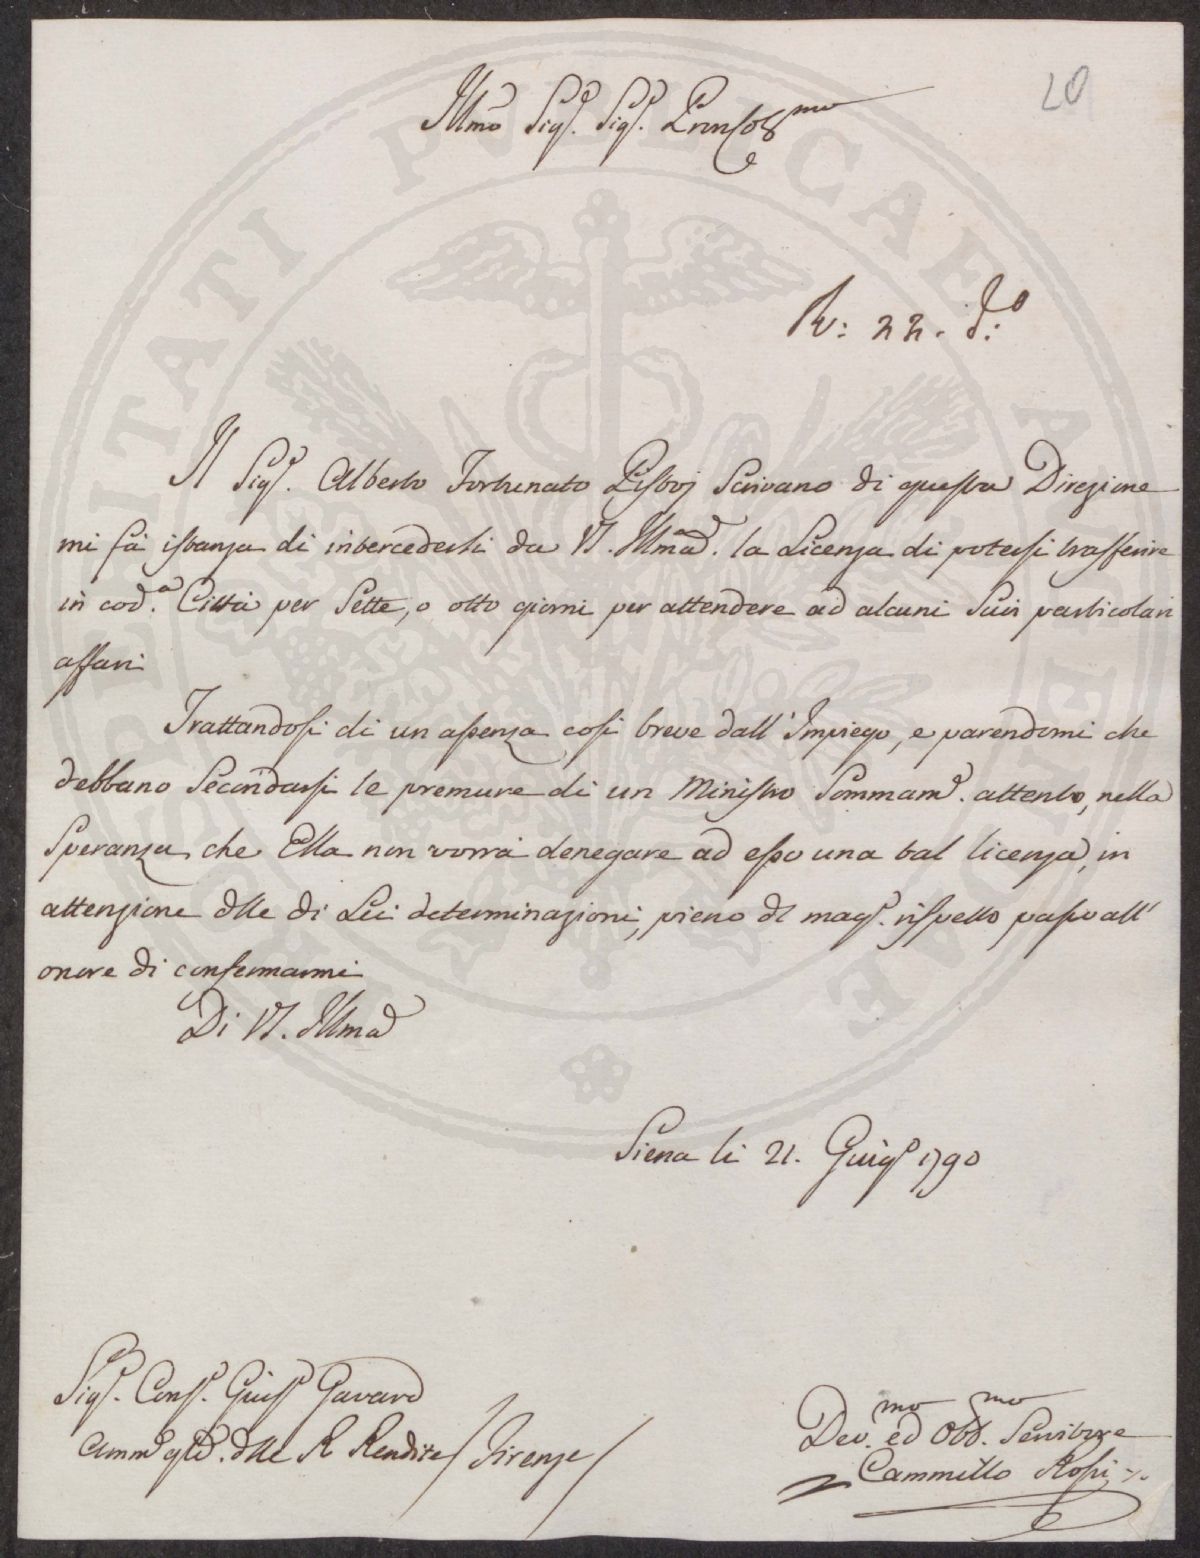 20
Illmo Sigre. Sigre. Pnn Colmo
Rx: 22. do:
Il Sigr. Alberto Fortunato Scrivano di questa Direzione
mi fà istanza di intercederli da VS. Illma. la Licenza di potersi trasferire
in cod.a Città per Sette, o otto giorni per attendere ad alcuni Suoi particolari
affari
Trattandosi di un assenza così breve dall' Impiego, e parendomi che
debbano Secondarsi le premure di un Ministro Sommam. attento, nella
Speranza che Ella non vorrà denegare ad esso una tal licenza, in
attenzione dlle di Lei determinazioni, pieno dl magr. rispetto passo all'
onore di confermarmi
Di VS. Illma
Siena li 21. Giugo 1790
Sigr. Cons. Giuse Gavard
Ammre gle. dlle R Rendite / Firenze /
Dev.mo ed Obb.mo Servitore
Cammillo Rossi